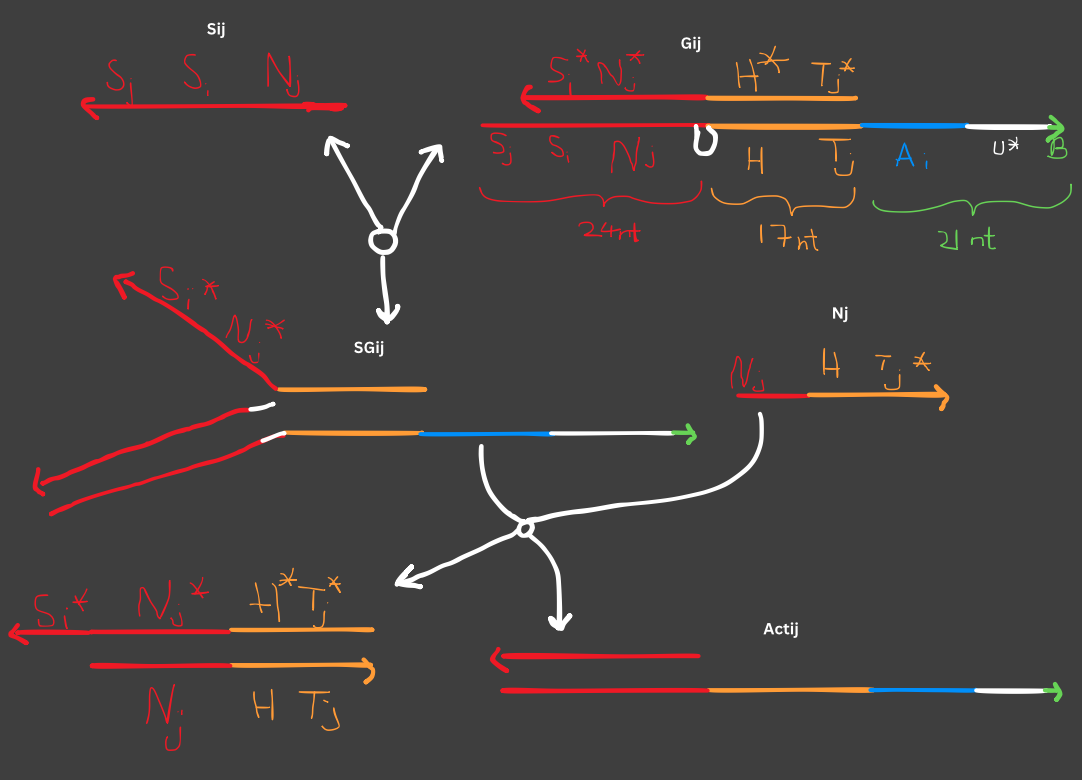 Sij
Sj Si Nj
Gij
Si* Nj* H* Tj*
Sj Si Nj U H Tj Ai U* B
24nt 17nt 21nt
Si*
Nj*
SGij
Nj
Nj H Tj*
Si* Nj* H* Tj*
Nj H Tj
Actij